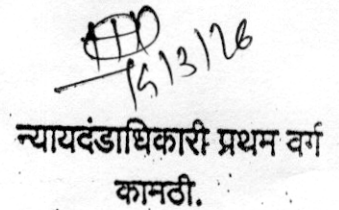 15/3/26
न्यायदंडाधिकारी प्रथम वर्ग
कामठी.